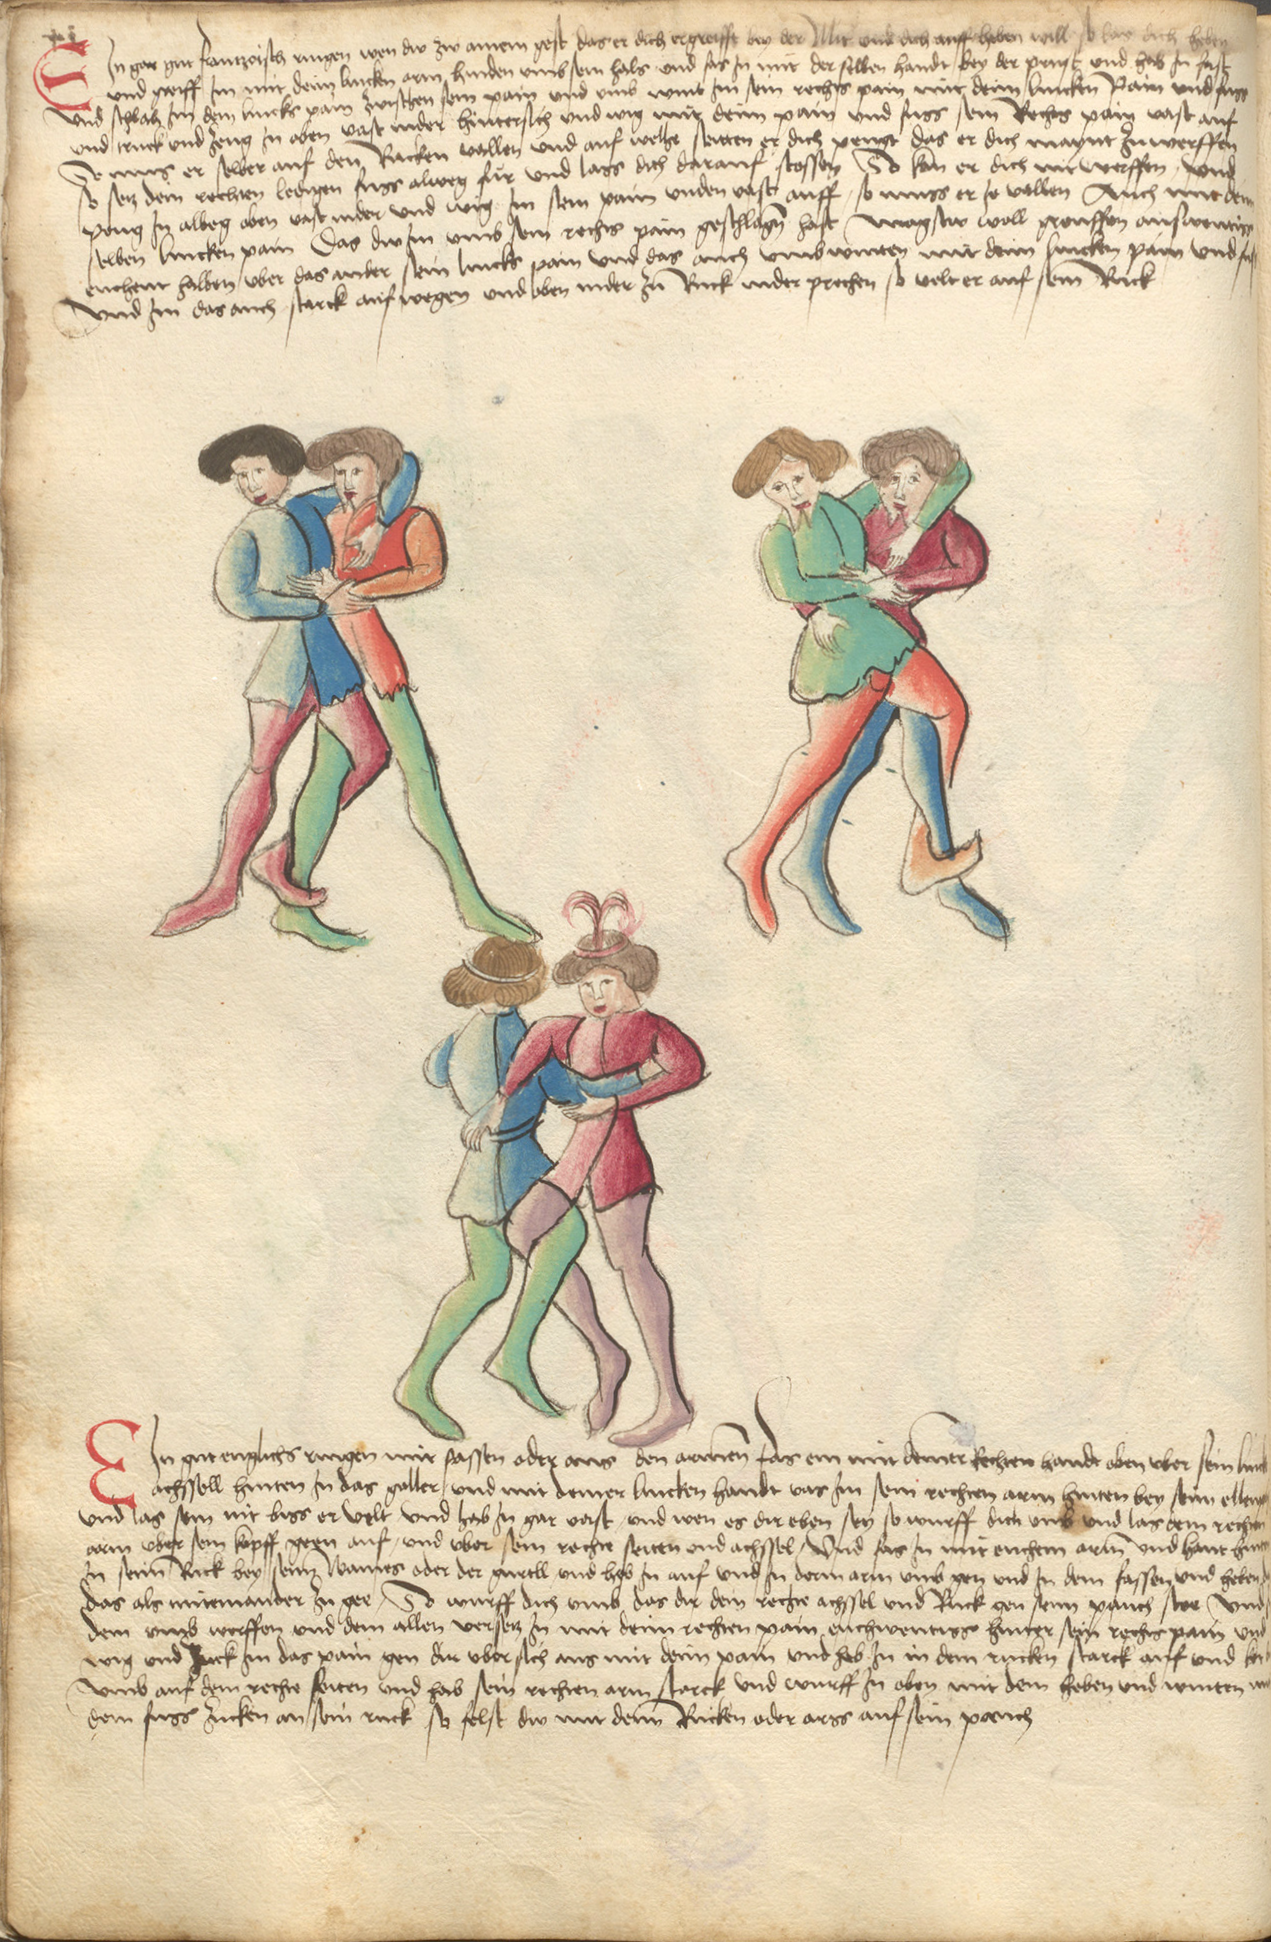 Ein gar gut frantzosisch ringen wen dw zw ainem gest das er dich ergreifft bey der Mit und dich auff heben will so las dich heben
und greiff im mit deim lincken arm hinden umb sein hals und fas in mit der selben handt bey der prust und hab in fast
und schlach im dein lincks pain zwischen sein pain und umb wint im sein rechts pain mit deim lincken Pain und fuss
und truck und zeug in oben vast nider hintersich und wig mit deim pain und fuss sein Rechts pain vast auf
So mus er selber auf den Rucken vallen und auf welche seitten er dich zeugt das er dich maynt zuwerffen
so setz dein rechten ledigen fuss alweg für und lass dich darauf stossen So kan er dich nit werffen und
zeug in alweg oben vast nider und wig im sein pain unden vast auff so muss er so vallen Auch mit dem
selben lincken pain Das dw im umb sein rechts pain geschlagen hast magstw woll greuffen auswentig
einhent halben uber das ander sein lincks pain und das auch umb winten mit deim lincken pain und fuss
und im das auch starck auf wegen und oben nider zu Ruck nider prechen so velt er auf sein Rück
Ein gut englichs ringen mit fassen oder aus den armen fas ein mit deiner Rechten handt oben uber sein linck
achssell hinten in das goller und mit deiner lincken handt vas im sein rechten arm hinten bey seim ellenpo
und las sein nit biss er velt und hab in gar vast und wen es dir eben sey so wurff dich umb und las dein rechten
arm uber sein kopff gegen auf und uber sein rechte seiten und achssel Und fas in mit einchem arm und hant hinten
in seim Rück bey seim wames oder der gurtll und heb in auf und in deim arm umb gen und in dem fassen und heben
das als miteinander zu gee So wurff dich umb das dir dein rechte achssel und Ruck gen seim pauch stee Und
dem umb werffen und dem allen versetz in mit deim rechten pain einchwentigs hinter sein rechts pain und
wig und zuck im das pain gen dir ubersich aus mit deim pain und heb in in dem rucken starck auf und ker
umb auf dein rechte seiten und hab sein rechten arm starck und wurff in oben mit dem heben und winten und
dem fuss zucken an sein ruck so felst dw mit deim Rucken oder arss auf sein pauch